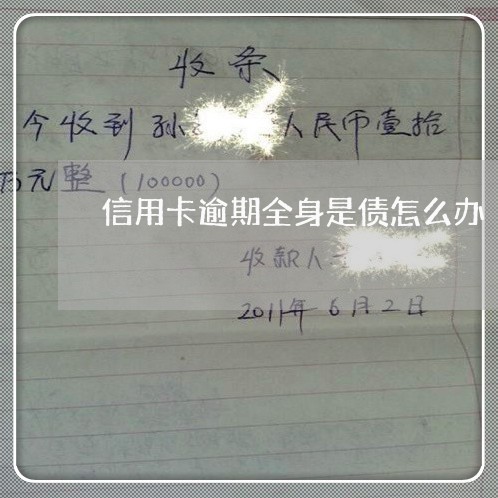 收条
今收到孙 人民币壹拾
万元整(100000)
信用卡逾期全身是债怎么办
收款人
2011年6月2日